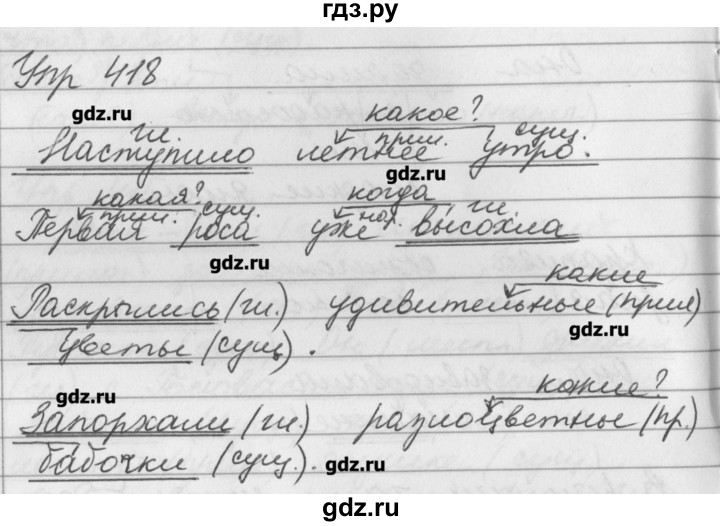 гдз.ру
Упр 418
gdz.ru какое?
гл. прил. сущ.
Наступило летнее утро.
gdz.ru
какая? когда
прил. сущ. нар. гл.
Первая роса уже высохла
gdz.ru
какие
Раскрылись (гл.) удивительные (прил)
gdz.ru
Цветы (сущ).
gdz.ru какие?
Запорхали (гл.) разноцветные (пр.)
бабочки (сущ.). gdz.ru
gdz.ru